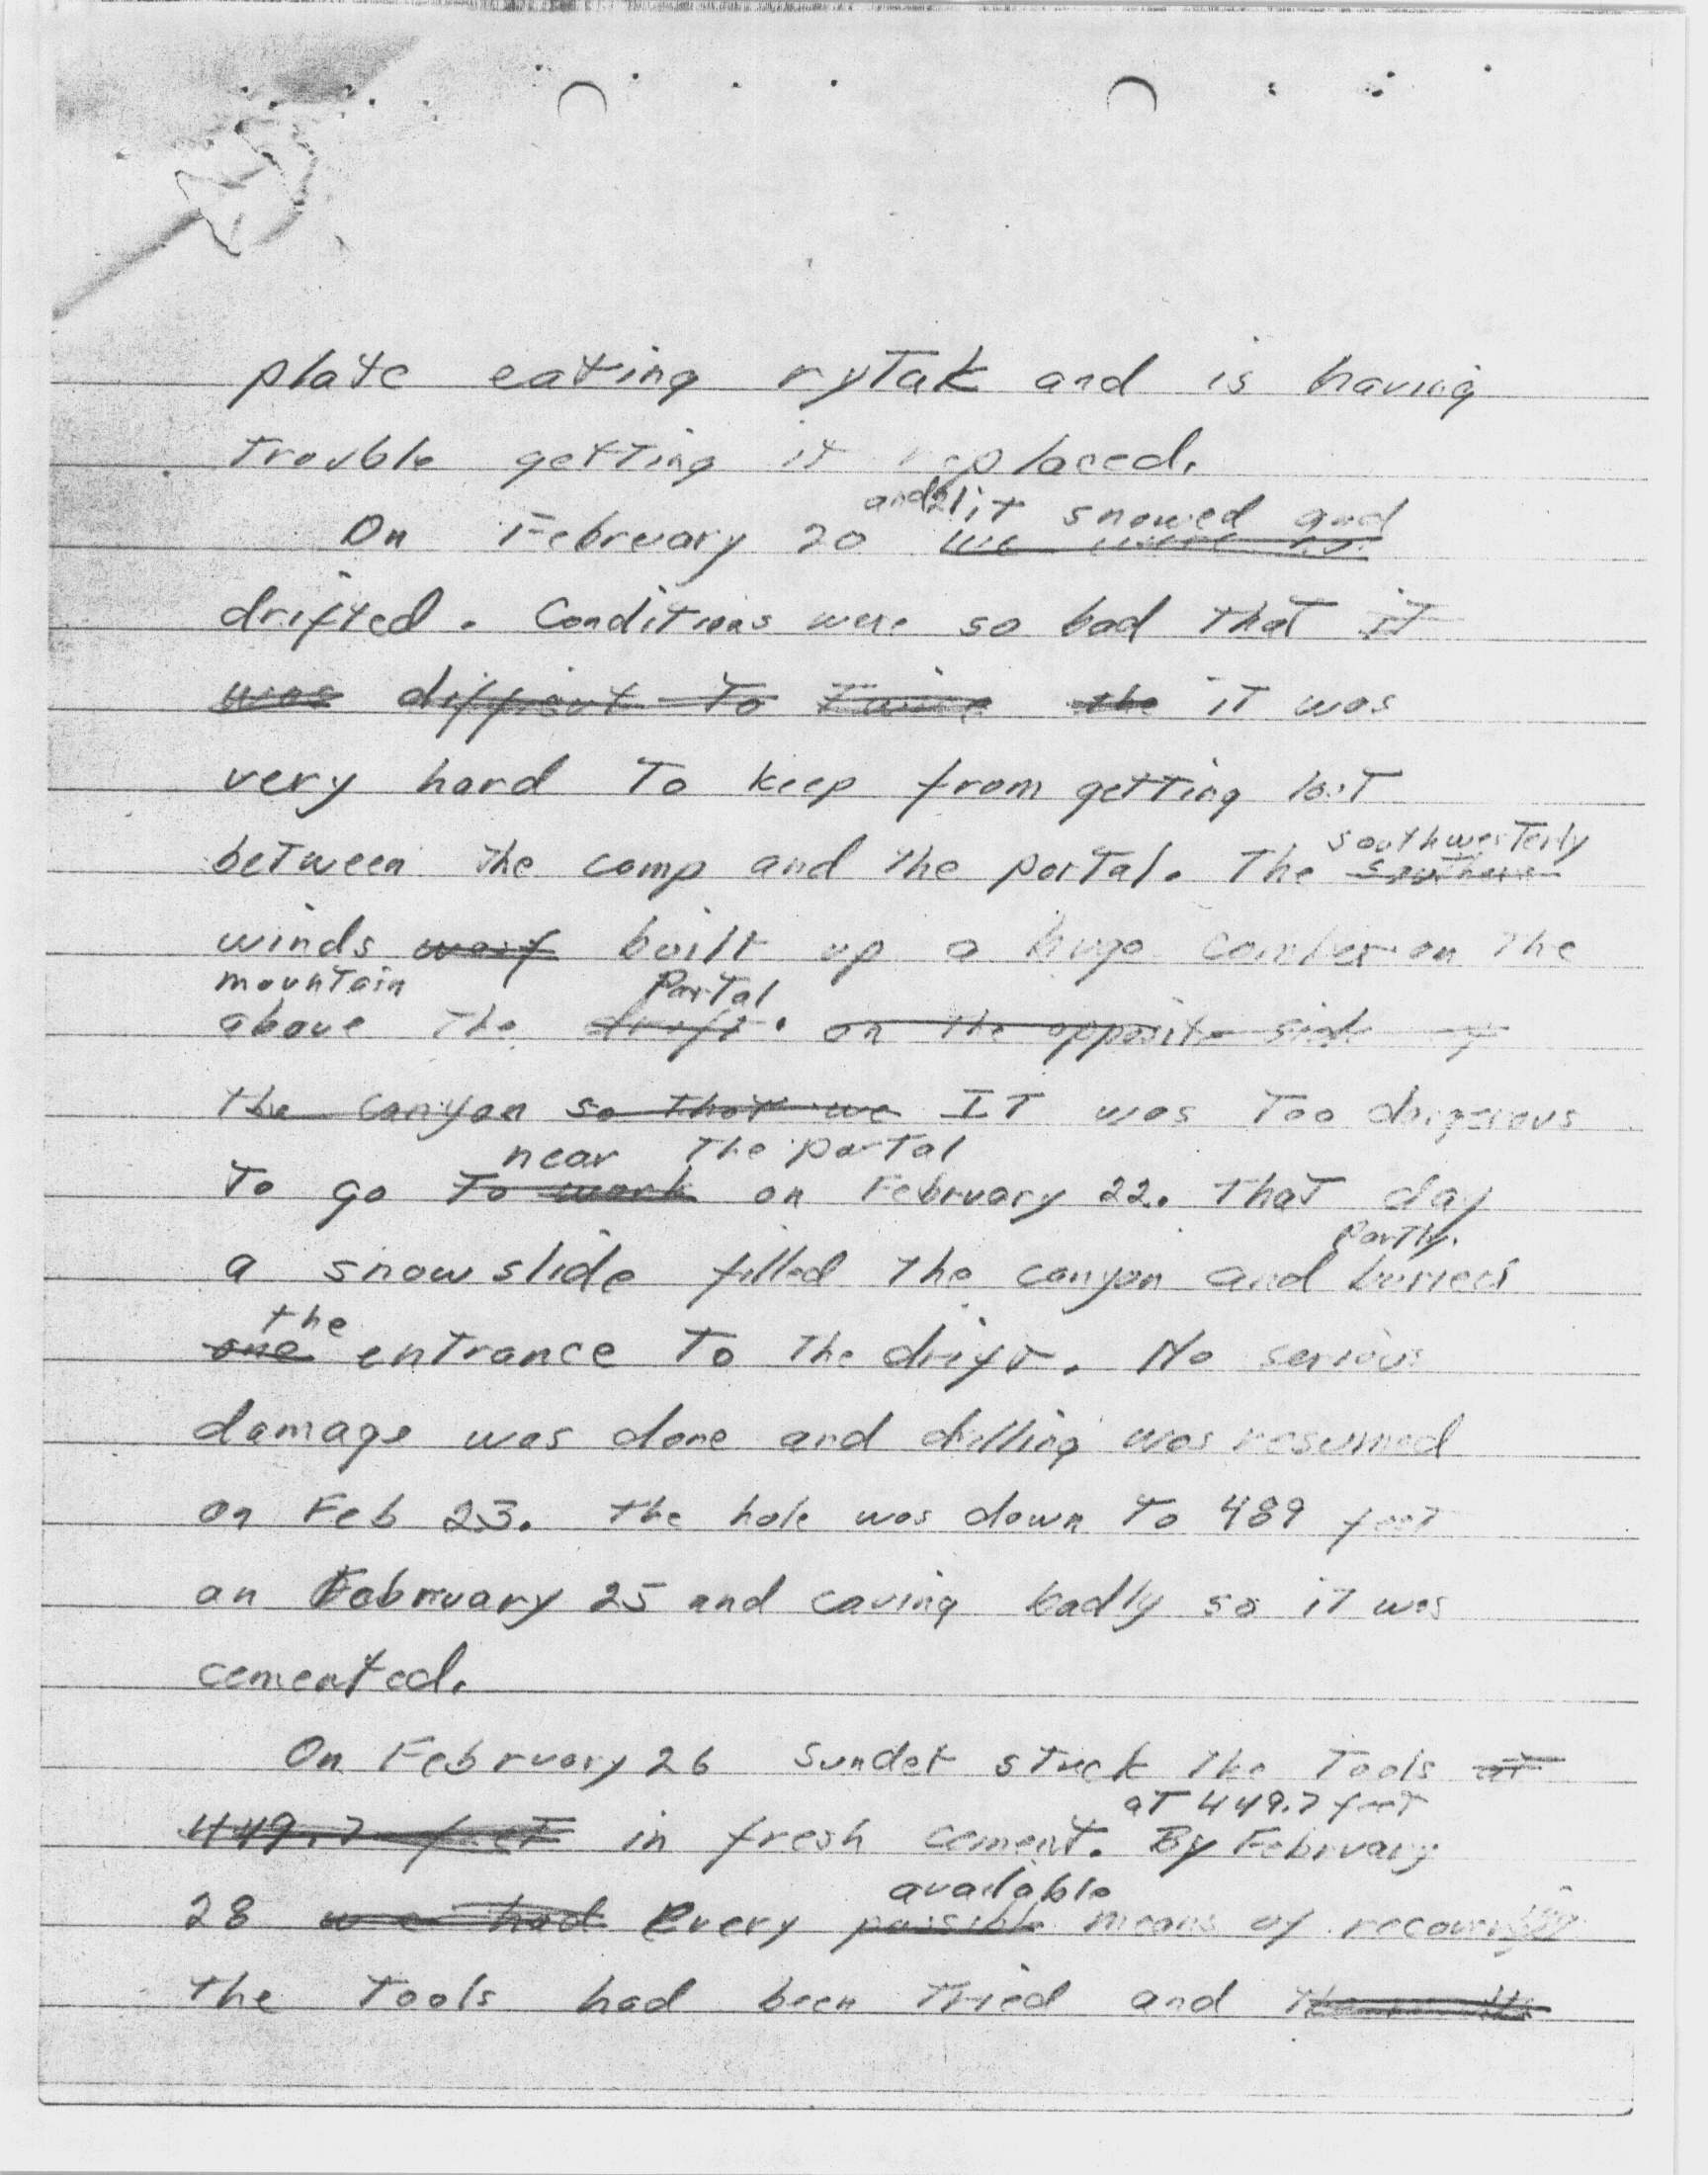 plate eating rytak and is having
trouble getting it replaced.
and 21 it snowed and
On February 20 we were so
drifted. Conditions were so bad that it
was difficut to the it was
very hard to keep from getting lost
between the camp and the portal. The southwesterly
winds built up a huge on the
mountain Portal
above the drift. on the opposite side of
the canyon so that we IT was too dangerous
near the portal
To go to work on February 22. That day
partly
a snowslide filled the canyon and buried
the
one entrance to the drift. No serious
damage was done and drilling was resumed
on Feb 23. The hole was down to 489 feet
on February 25 and caving badly so it was
cemented.
On February 26 Sundet stuck the tools at
at 449.7 feet
449.7 feet in fresh cement. By February
available
28 we had Every possible means of recovering
the tools had been tried and